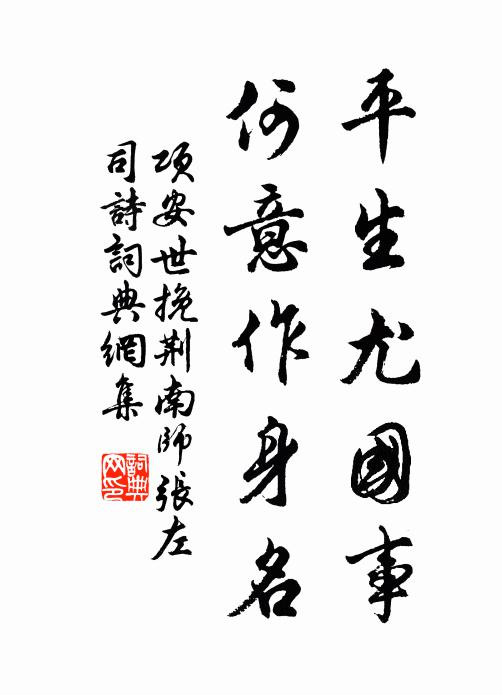 平生尤國事
何意作身名
項安世挽荆南師張左
司詩詞典網集
詞典網印